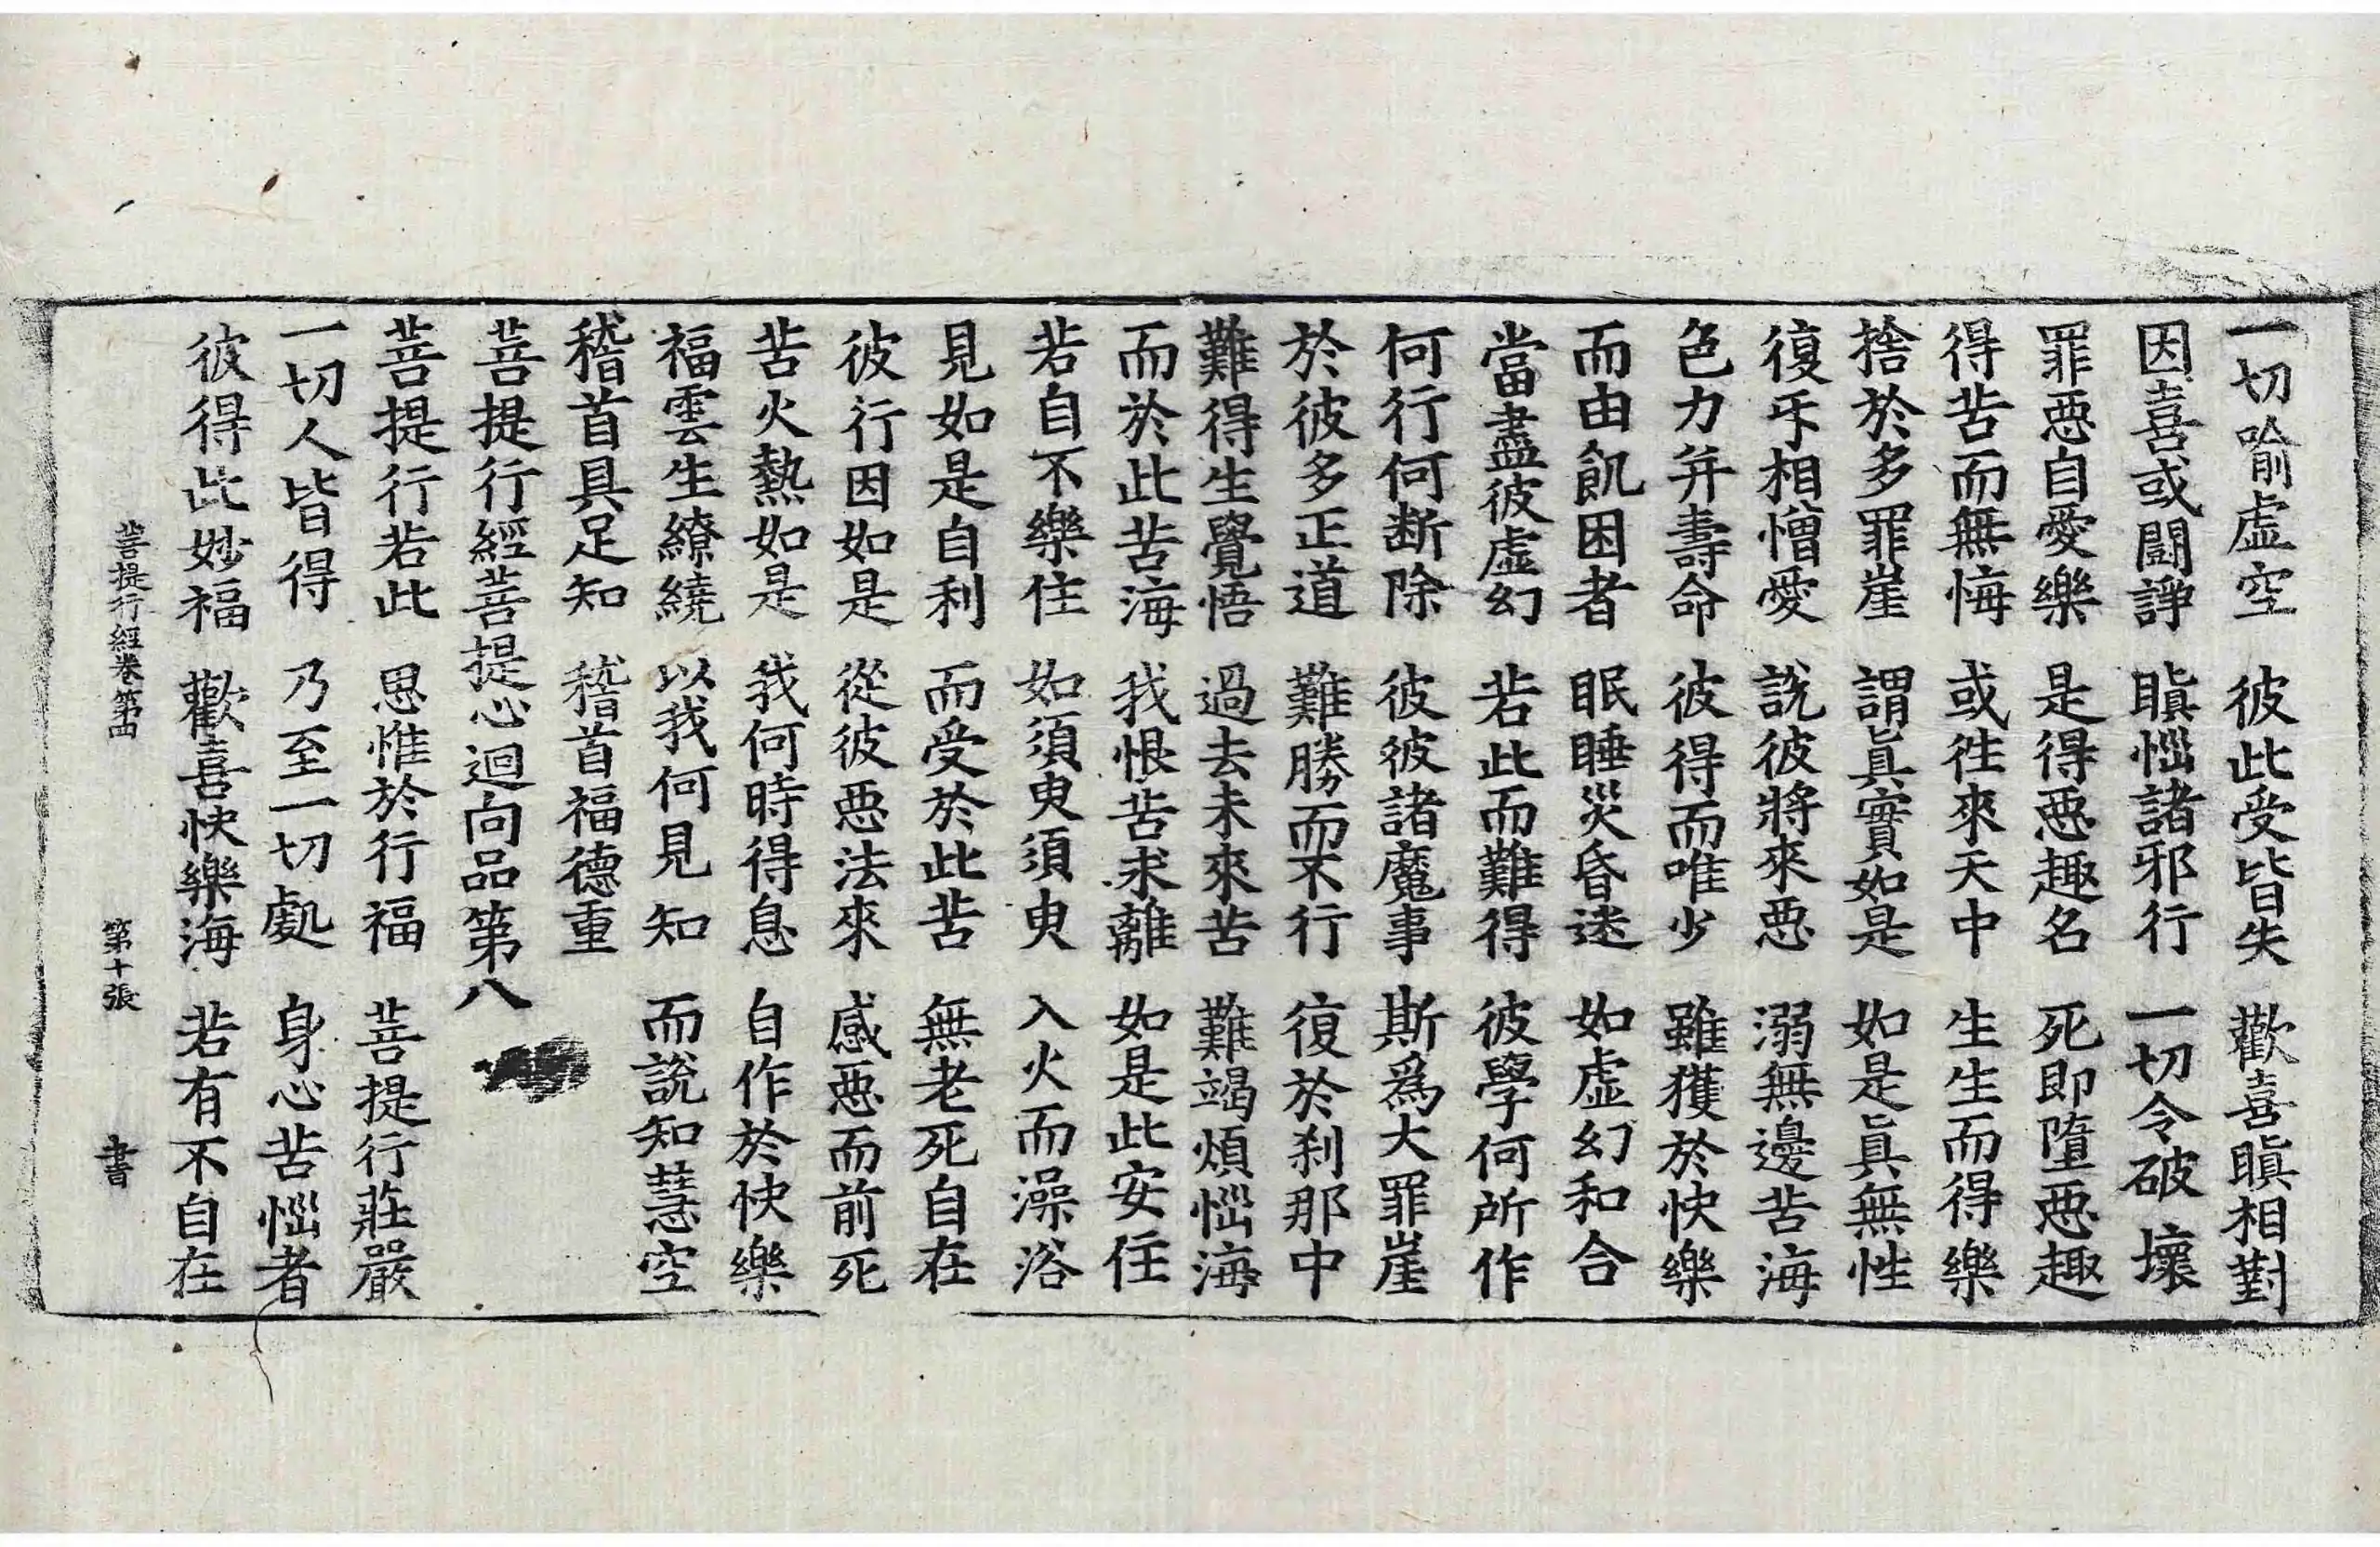 一切喻虛空　彼此受皆失　歡喜瞋相對
因喜或鬪諍　瞋惱諸邪行　一切令破壞
罪惡自愛樂　是得惡趣名　死即墮惡趣
得苦而無悔　或往來天中　生生而得樂
捨於多罪崖　謂眞實如是　如是眞無性
復互相憎愛　說彼將來惡　溺無邊苦海
色力并壽命　彼得而唯少　雖獲於快樂
而由飢困者　眠睡災昏迷　如虛幻和合
當盡彼虛幻　若此而難得　彼學何所作
何行何断除　彼彼諸魔事　斯爲大罪崖
於彼多正道　難勝而不行　復於刹那中
難得生覺悟　過去未來苦　難竭煩惱海
而於此苦海　我恨苦求離　如是此安住
若自不樂住　如須臾須臾　入火而澡浴
見如是自利　而受於此苦　無老死自在
彼行因如是　從彼惡法來　感惡而前死
苦火熱如是　我何時得息　自作於快樂
福雲生繚繞　以我何見知　而說知慧空
稽首具足知　稽首福德重
菩提行經菩提心迴向品第八
菩提行若此　思惟於行福　菩提行莊嚴
一切人皆得　乃至一切處　身心苦惱者
彼得此妙福　歡喜快樂海　若有不自在
菩提行經卷第四　第十張　書